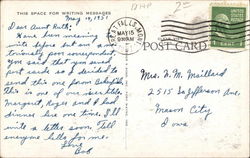 THIS SPACE FOR WRITING MESSAGES
May 14, 1951
Dear Aunt Ruth,
Have been meaning to
write before but am a no-
toriously poor correspondent.
You said that you saved
post cards so I decided to
send this one from
This is one of our
Margaret, Roger and I had
dinner here one time. I'll
write a letter soon. Tell
everyone hello for me.
Love
Bob
GREAT FALLS, MONT.
MAY 15
1951
POST CARD
Mrs. H. M. Maillard
2515 Jefferson Ave.
Mason City
Iowa